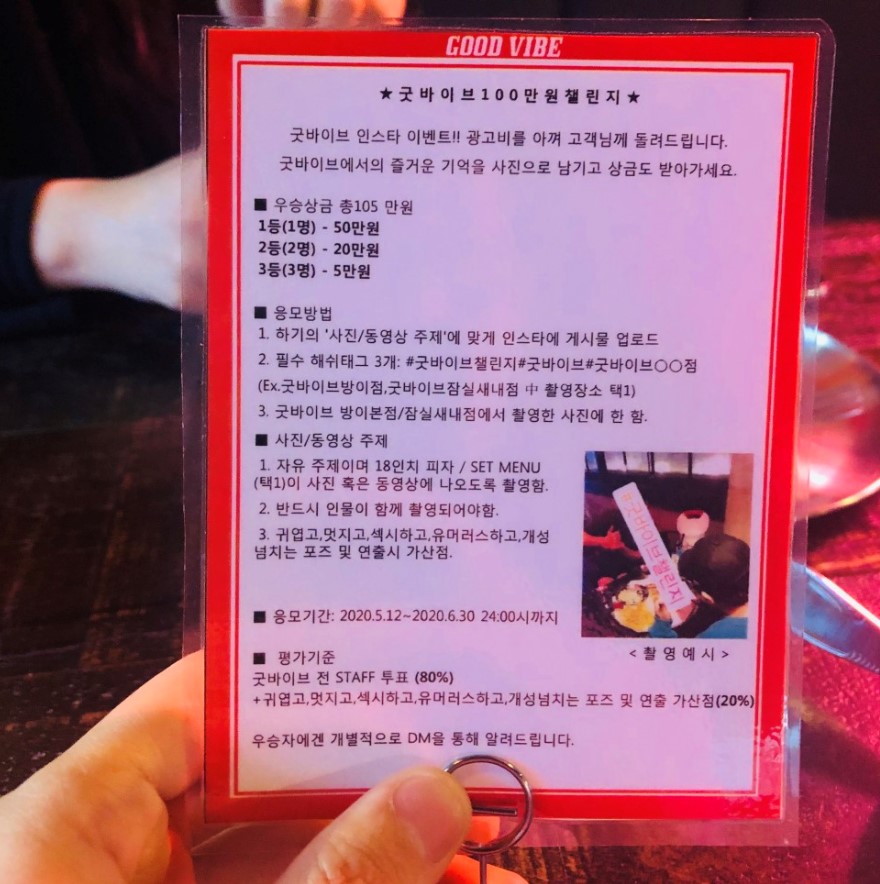 GOOD VIBE
★굿바이브100만원챌린지★
굿바이브 인스타 이벤트!! 광고비를 아껴 고객님께 돌려드립니다.
굿바이브에서의 즐거운 기억을 사진으로 남기고 상금도 받아가세요.
■ 우승상금 총105 만원
1등(1명) - 50만원
2등(2명) - 20만원
3등(3명) - 5만원
■ 응모방법
1. 하기의 '사진/동영상 주제'에 맞게 인스타에 게시물 업로드
2. 필수 해쉬태그 3개: #굿바이브챌린지#굿바이브#굿바이브○○점
(Ex.굿바이브방이점,굿바이브잠실새내점 中 촬영장소 택1)
3. 굿바이브 방이본점/잠실새내점에서 촬영한 사진에 한 함.
■ 사진/동영상 주제
1. 자유 주제이며 18인치 피자 / SET MENU
(택1)이 사진 혹은 동영상에 나오도록 촬영함.
2. 반드시 인물이 함께 촬영되어야함.
3. 귀엽고,멋지고,섹시하고,유머러스하고,개성
넘치는 포즈 및 연출시 가산점.
#굿바이브챌린지
<촬영예시>
■ 응모기간: 2020.5.12~2020.6.30 24:00시까지
■ 평가기준
굿바이브 전 STAFF 투표 (80%)
+귀엽고,멋지고,섹시하고,유머러스하고,개성넘치는 포즈 및 연출 가산점(20%)
우승자에겐 개별적으로 DM을 통해 알려드립니다.